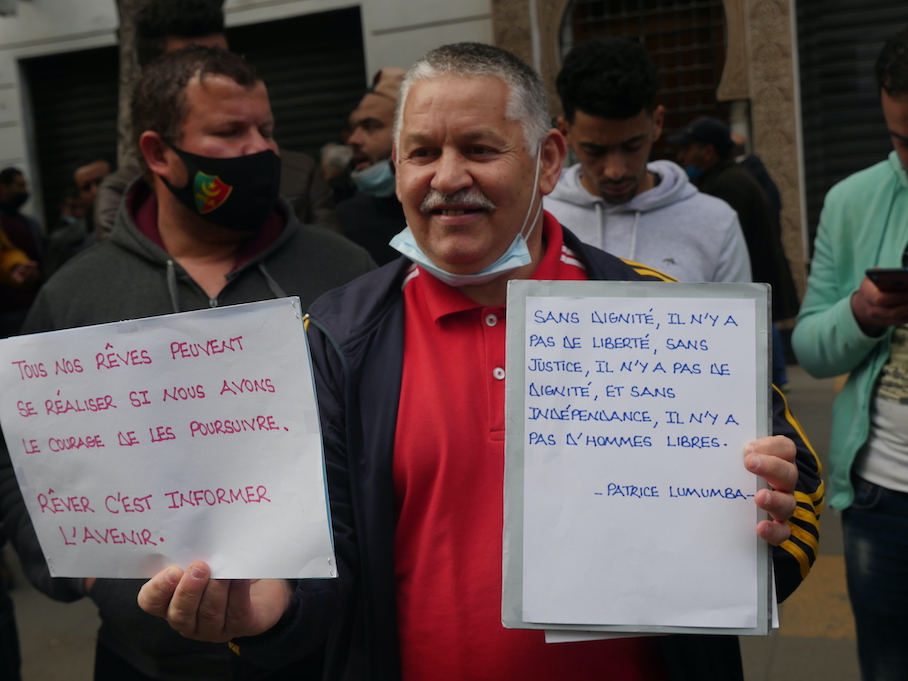 TOUS NOS RÊVES PEUVENT
SE RÉALISER SI NOUS AVONS
LE COURAGE DE LES POURSUIVRE.
RÊVER C'EST INFORMER
L'AVENIR.
SANS DIGNITÉ, IL N'Y A
PAS DE LIBERTÉ, SANS
JUSTICE, IL N'Y A PAS DE
DIGNITÉ, ET SANS
INDÉPENDANCE, IL N'Y A
PAS D'HOMMES LIBRES.
-PATRICE LUMUMBA-